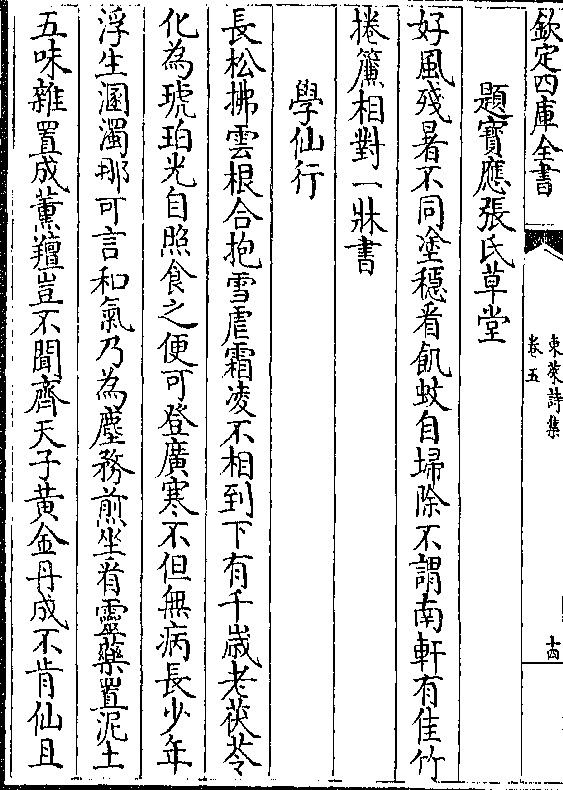 欽定四庫全書
東萊詩集
卷五
十四
題寶應張氏草堂
好風殘暑不同塗穩看飢蚊自埽除不謂南軒有佳竹
捲簾相對一牀書
學仙行
長松拂雲根合抱雪虐霜凌不相到下有千歲老茯苓
化為琥珀光自照食之便可登廣寒不但無病長少年
浮生溷濁那可言和氣乃為塵務煎坐看靈藥置泥土
五味雜置成薰羶豈不聞齊天子黄金丹成不肯仙且